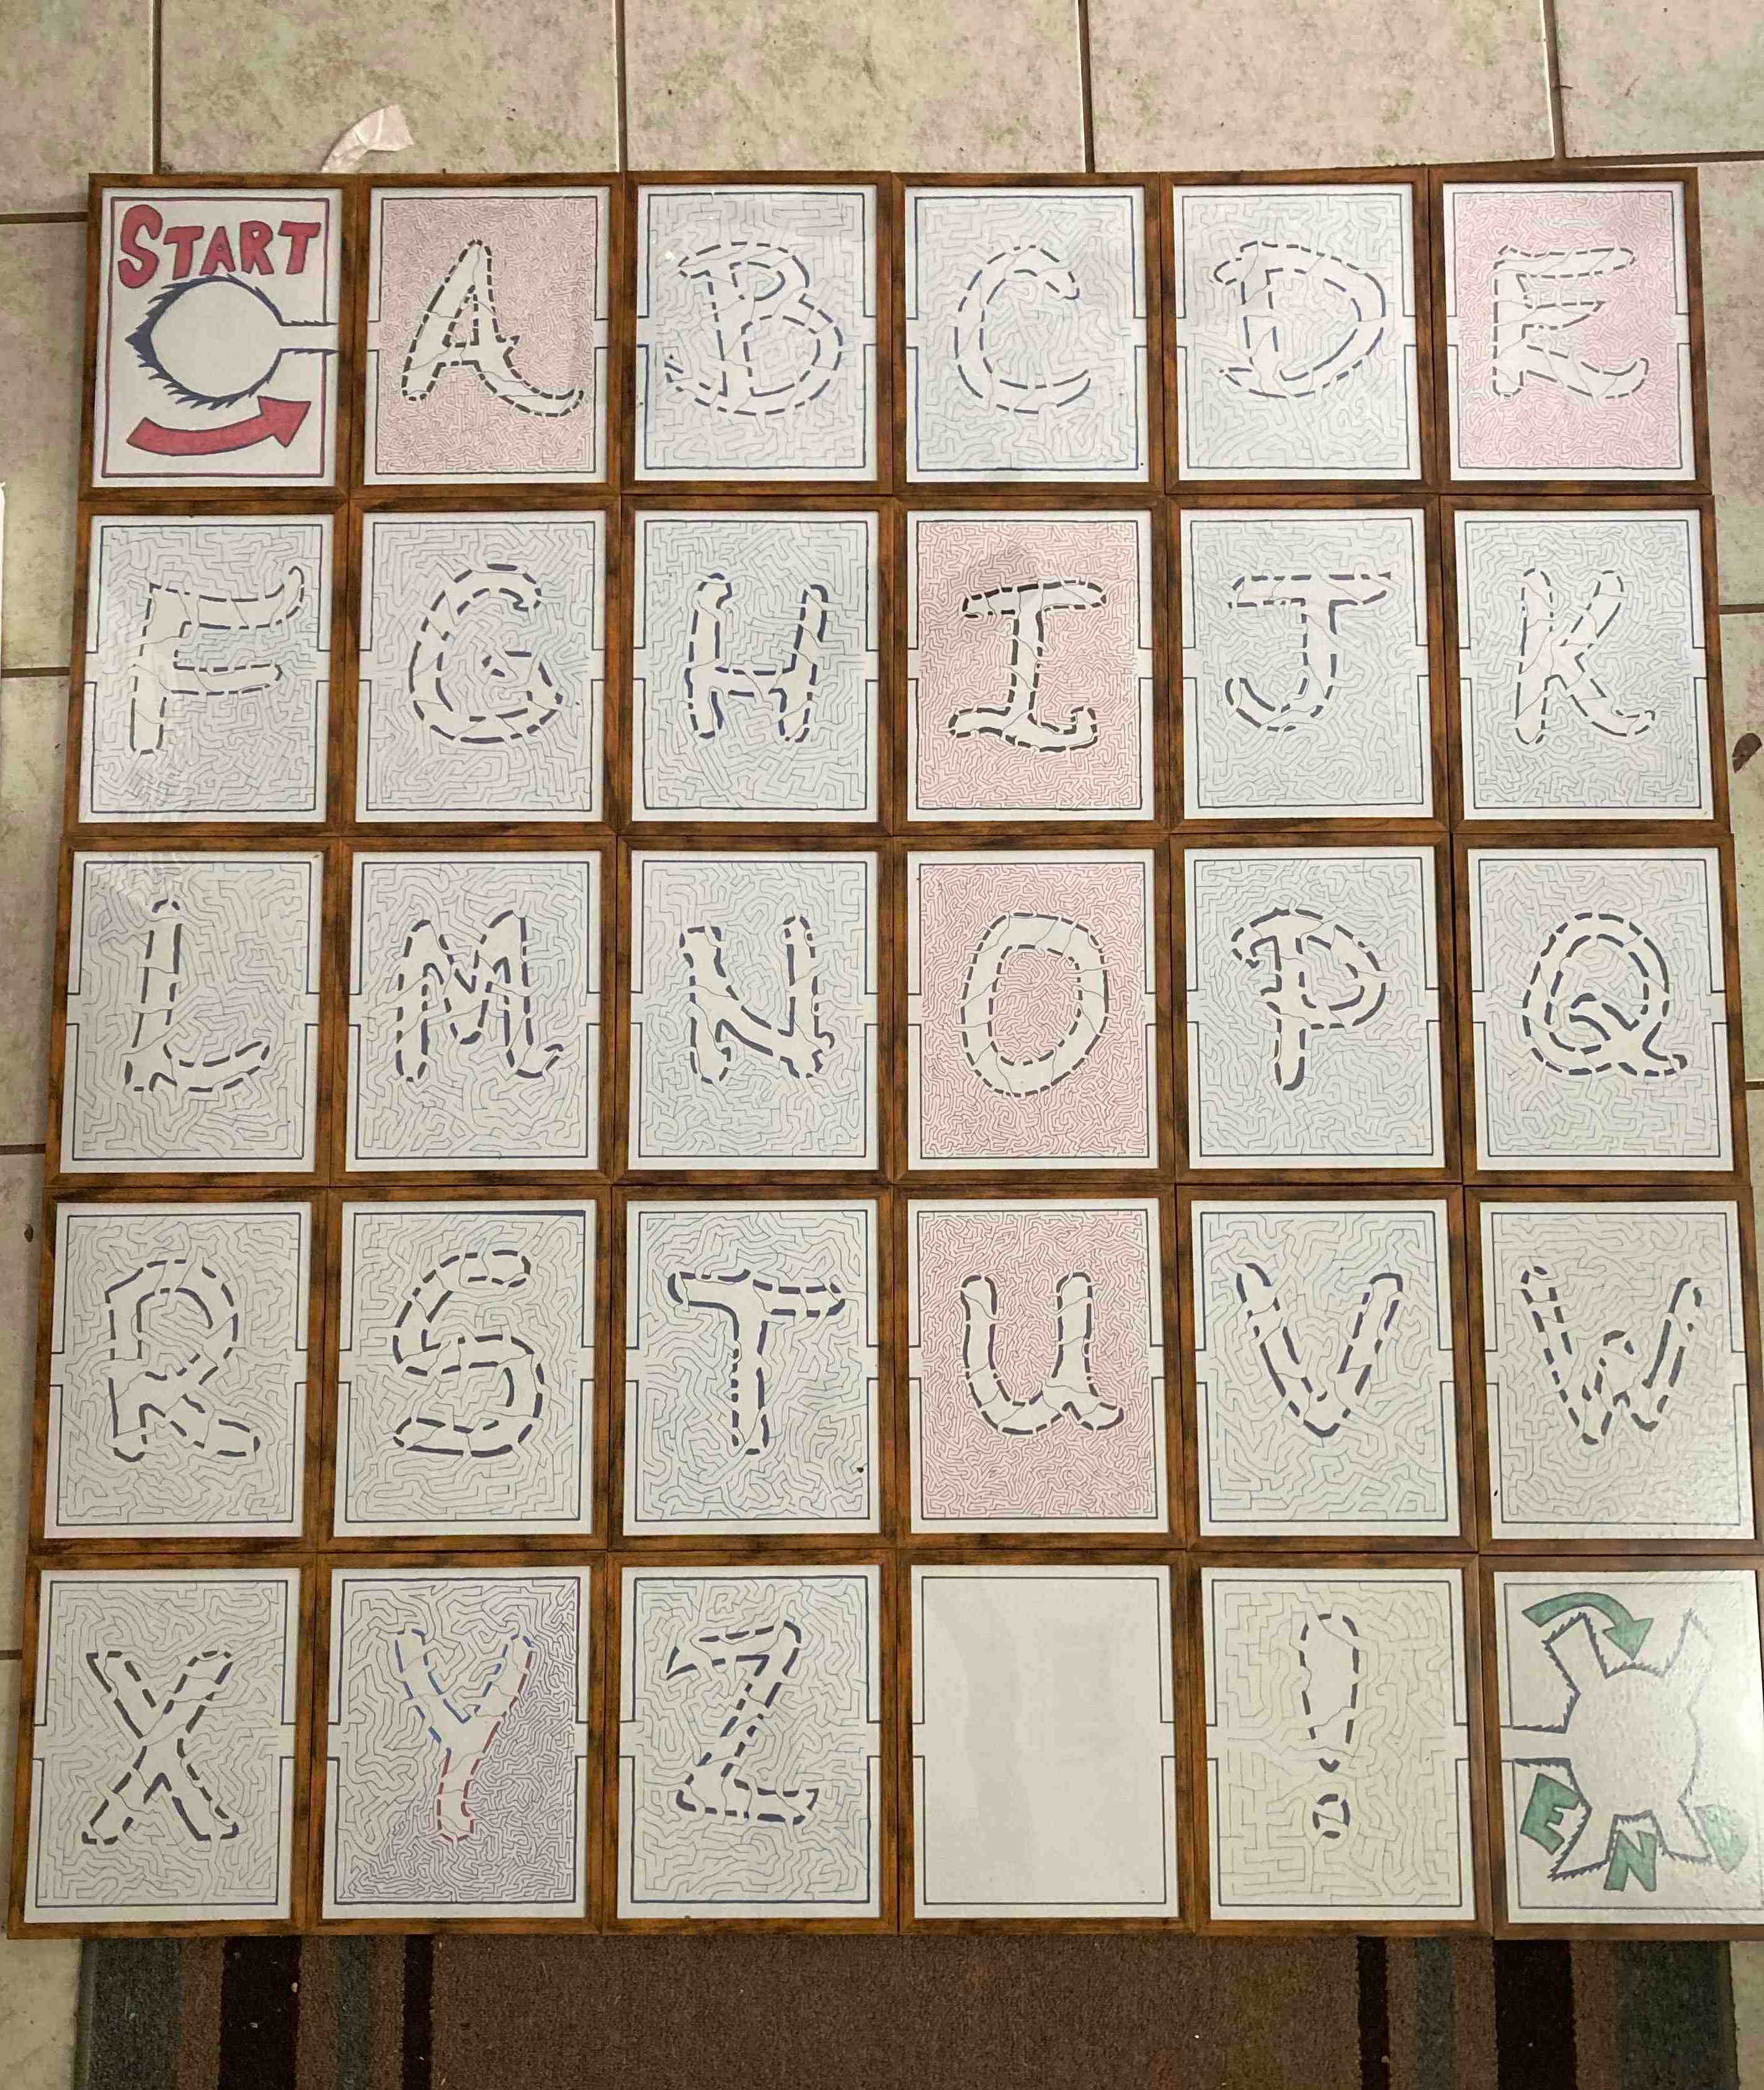 START A B C D E
F G H I J K
L M N O P Q
R S T U V W
X Y Z !
END